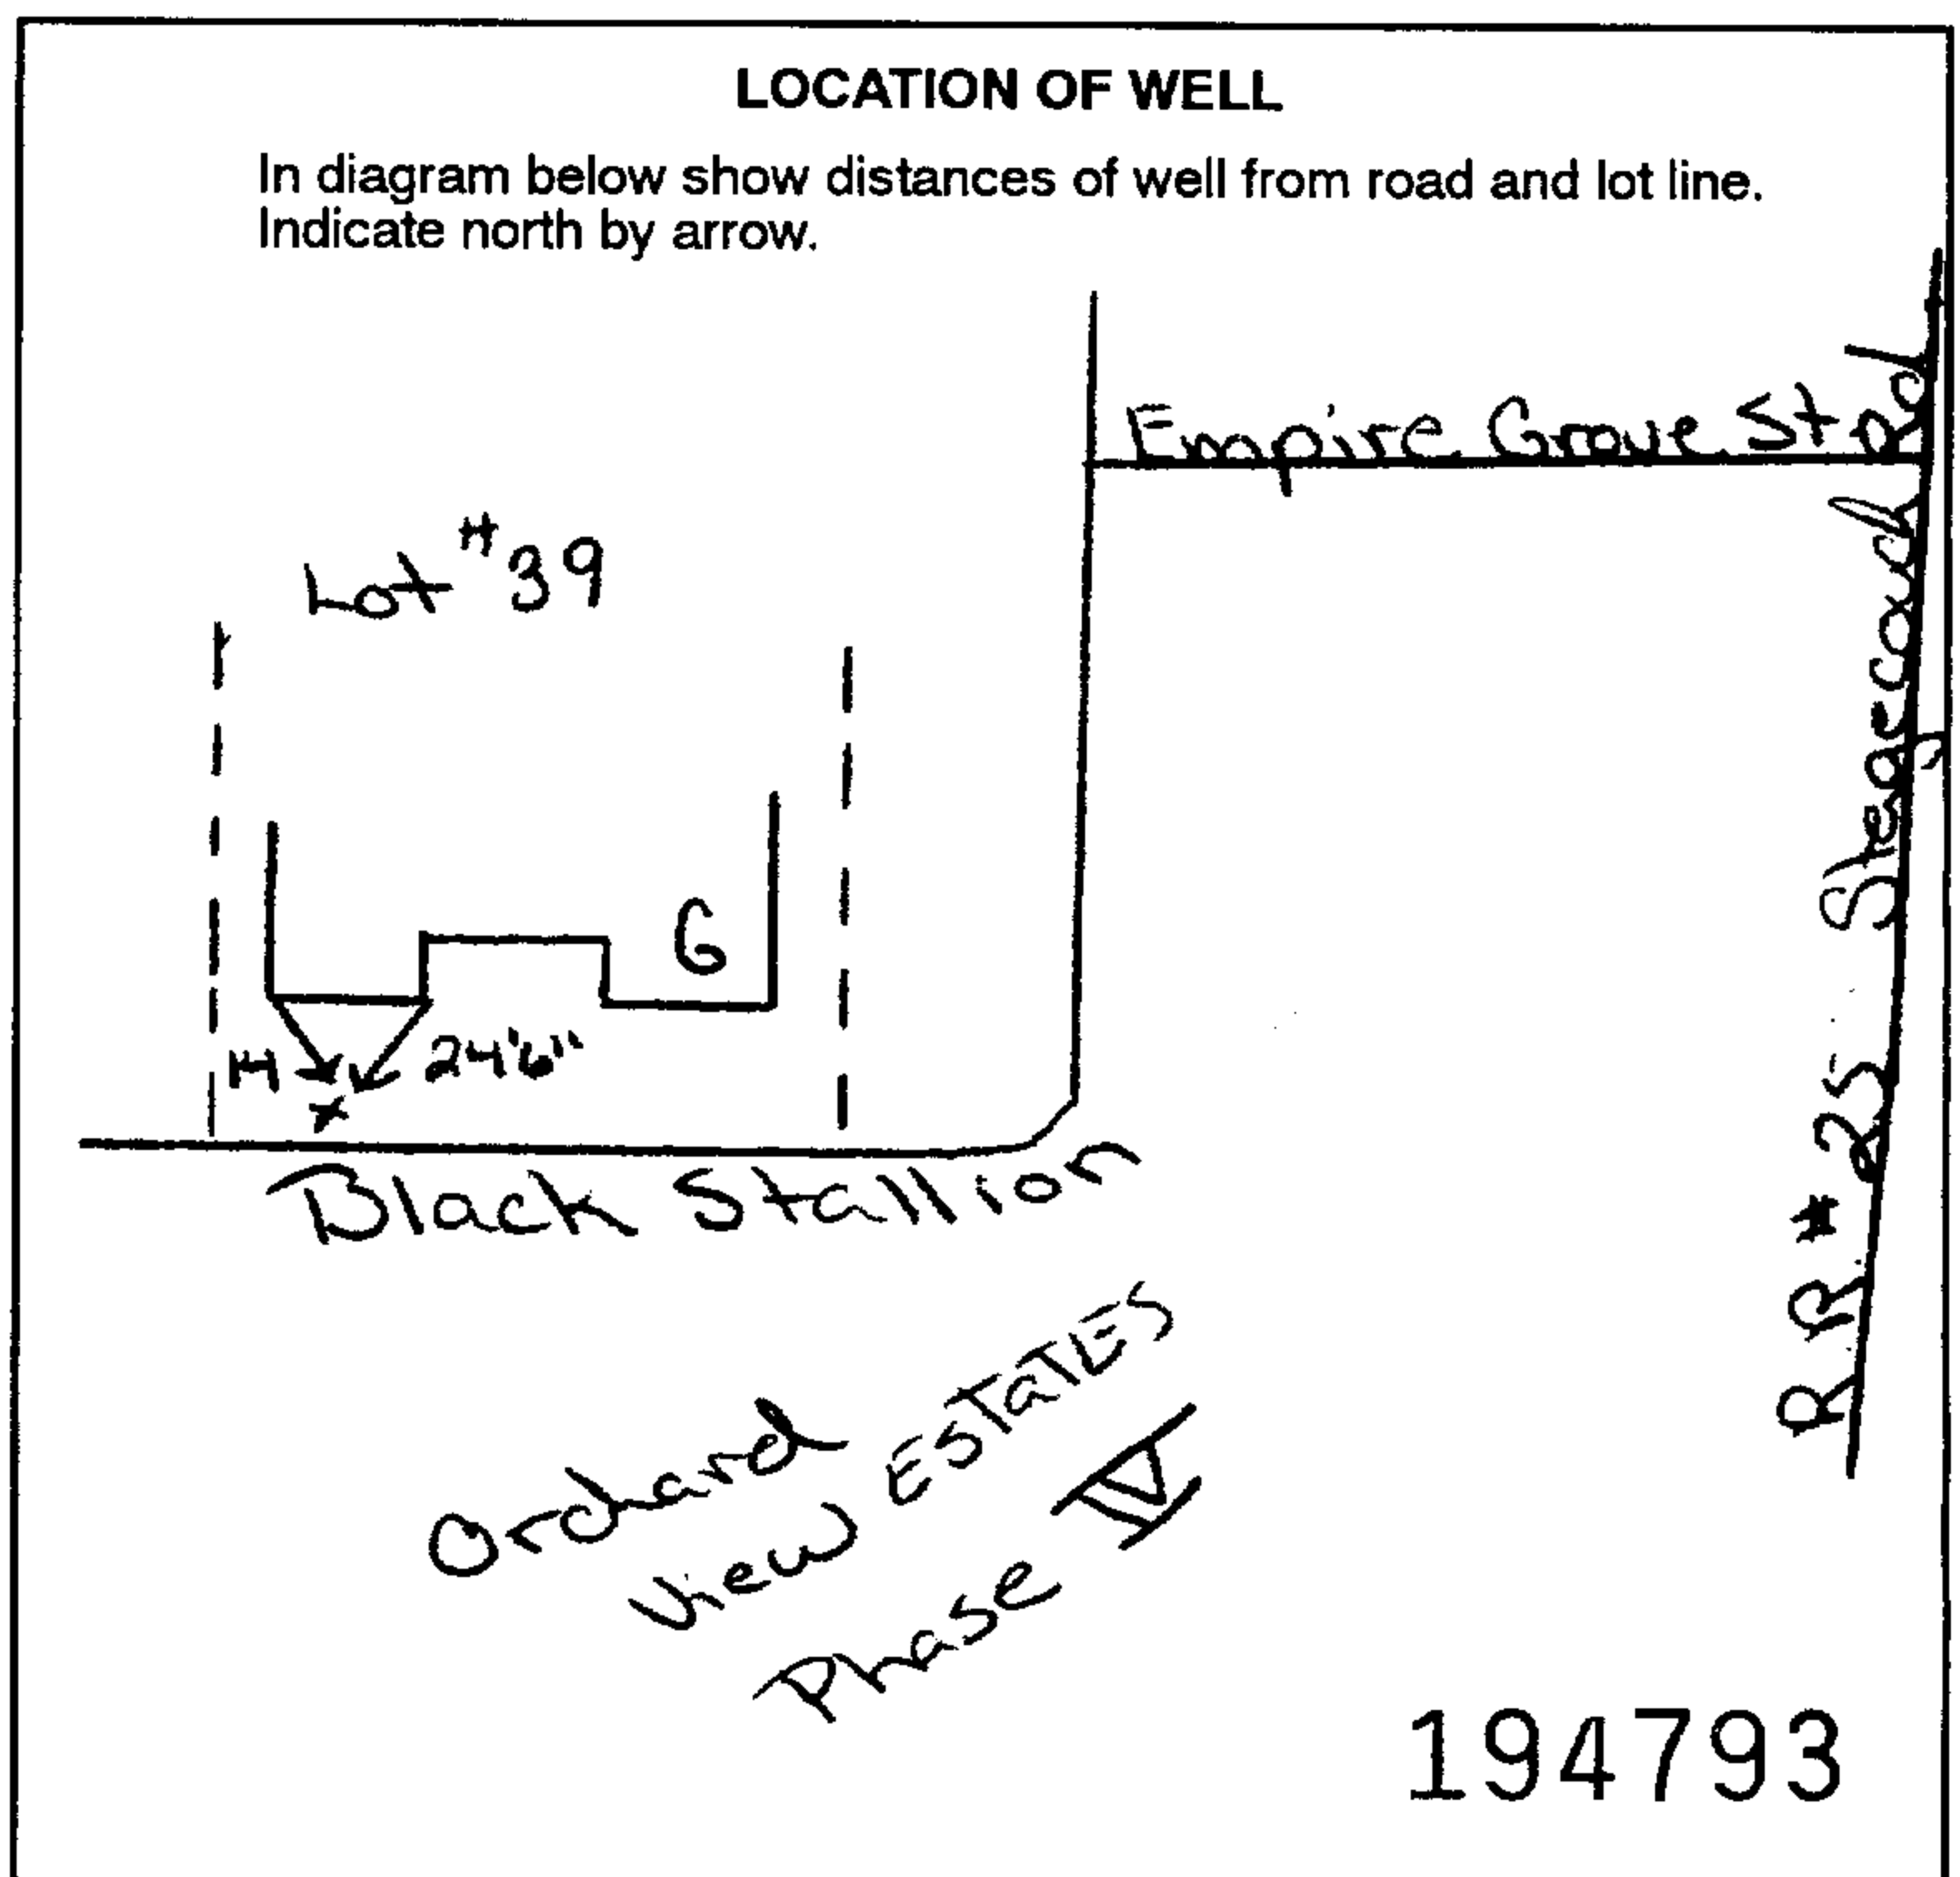 LOCATION OF WELL
In diagram below show distances of well from road and lot line.
Indicate north by arrow.
Empire Grove St
Lot #39
RR #25 Stagecoach Rd
G
14
24'6"
x
Black Stallion
Orchard
View ESTATES
Phase IV
194793